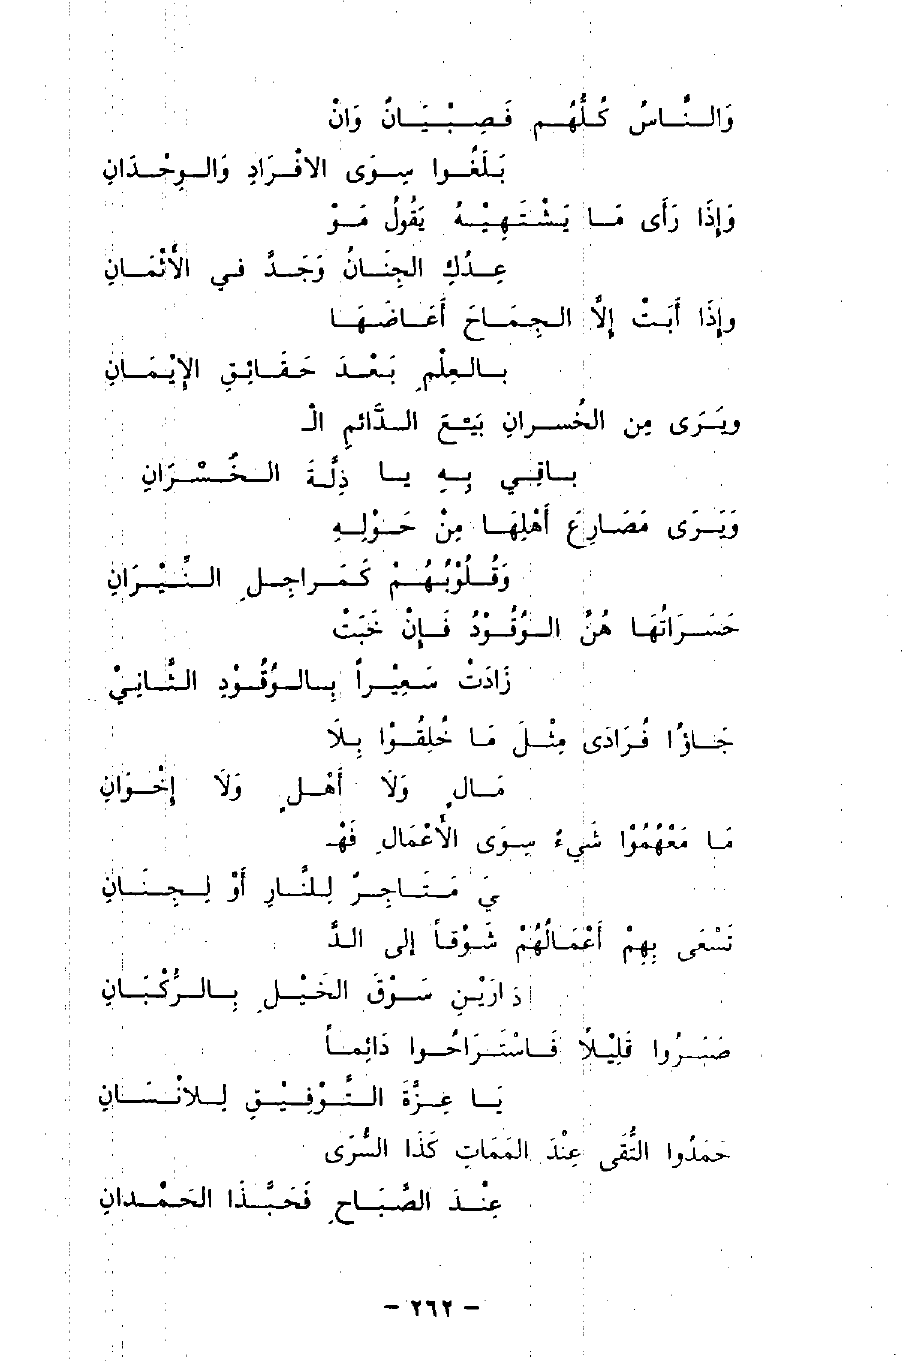 وَالنَّاسُ كُلُّهُم فَصِبْيَانٌ وَانْ
بَلَغُوا سِوَى الافْرَادِ وَالوِحْدَانِ
وَإِذَا رَأَى مَا يَشْتَهِيْهُ يَقُولُ مَوْ
عِدُكِ الجِنَانُ وَجَدَّ في الأَثْمَانِ
وإِذَا أَبَتْ إِلَّا الجِمَاحَ أَعَاضَهَا
بالعِلْمِ بَعْدَ حَقَائِقِ الإِيْمَانِ
ويَرَى مِن الخُسرانِ بَيْعَ الدَّائمِ الْـ
باقي بِهِ يا ذِلَّةَ الخُسْرَانِ
وَيَرَى مَصَارِعَ أَهْلِهَا مِنْ حَوْلِهِ
وَقُلُوْبُهُمْ كَمَراجِلِ النِّيْرَانِ
حَسَرَاتُهَا هُنُ الوُقُوْدُ فَإِنْ خَبَتْ
زَادَتْ سَعِيْراً بِالوُقُودِ الثَّانِيْ
جَاؤا فُرَادَى مِثْلَ مَا خُلِقُوْا بِلَا
مَالٍ وَلَا أَهْلٍ وَلَا إِخْوَانِ
مَا مَعْهُمُوْا شَيءُ سِوَى الأَعْمَالِ فَهْـ
يَ مَتَاجِرٌ لِلنَّارِ أَوْ لِجِنَانِ
تَسْعَى بِهِمْ أَعْمَالُهُمْ شَوْقاً إلى الدَّ
ارَيْنِ سَوْقَ الخَيْلِ بِالرُّكْبَانِ
صَبَرُوا قَلِيْلًا فَاسْتَرَاحُوا دَائِماً
يَا عِزَّةَ التَّوْفِيْقِ لِلانْسَانِ
حَمَدُوا التُّقَى عِنْدَ المَمَاتِ كَذَا السُّرَى
عِنْدَ الصَّبَاحِ فَحَبَّذَا الحَمْدانِ
- ٢٦٢ -